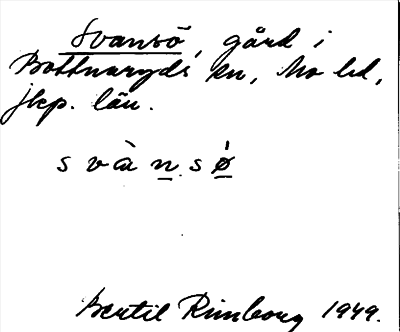 Svansö, gård i
Bottnaryds sn, Mo hd,
jkp. län.
svànsǿ
Bertil Rimborg 1949.